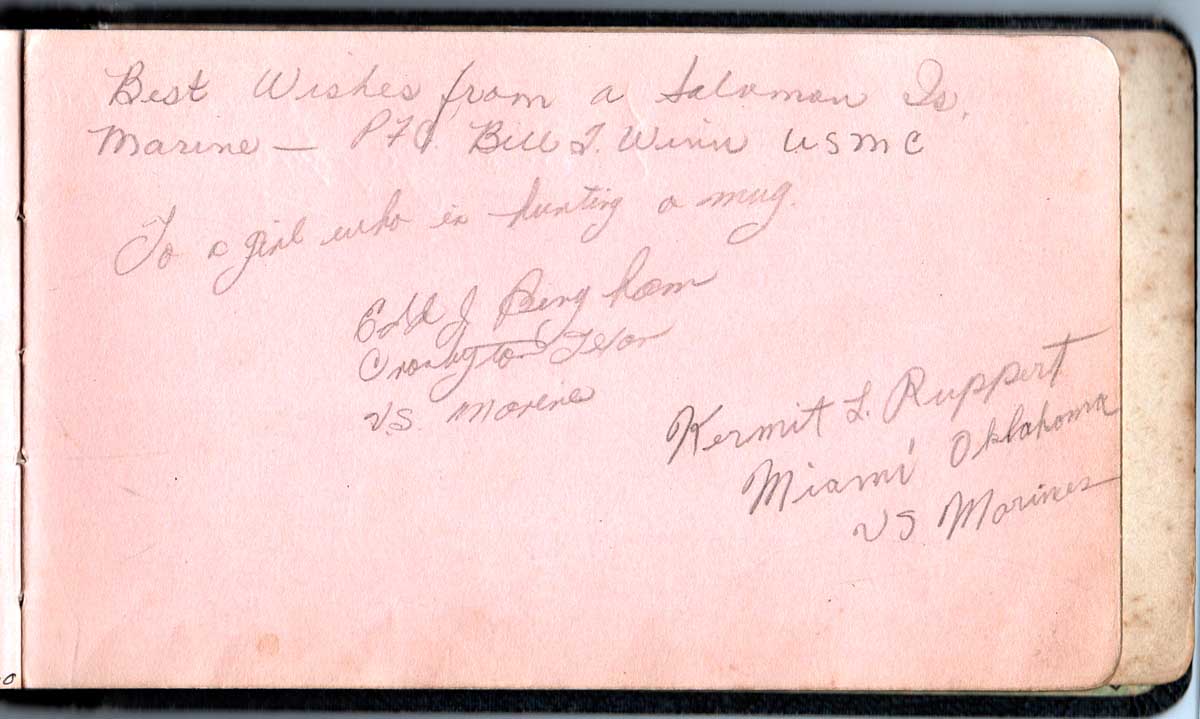 Best Wishes from a Solomon Is.
Marine — PFC. Bill T. Winn USMC
To a girl who is hunting a mug.
Edd J Bingham
Crosbyton Texas
U.S. Marine
Kermit L. Ruppert
Miami Oklahoma
US Marines